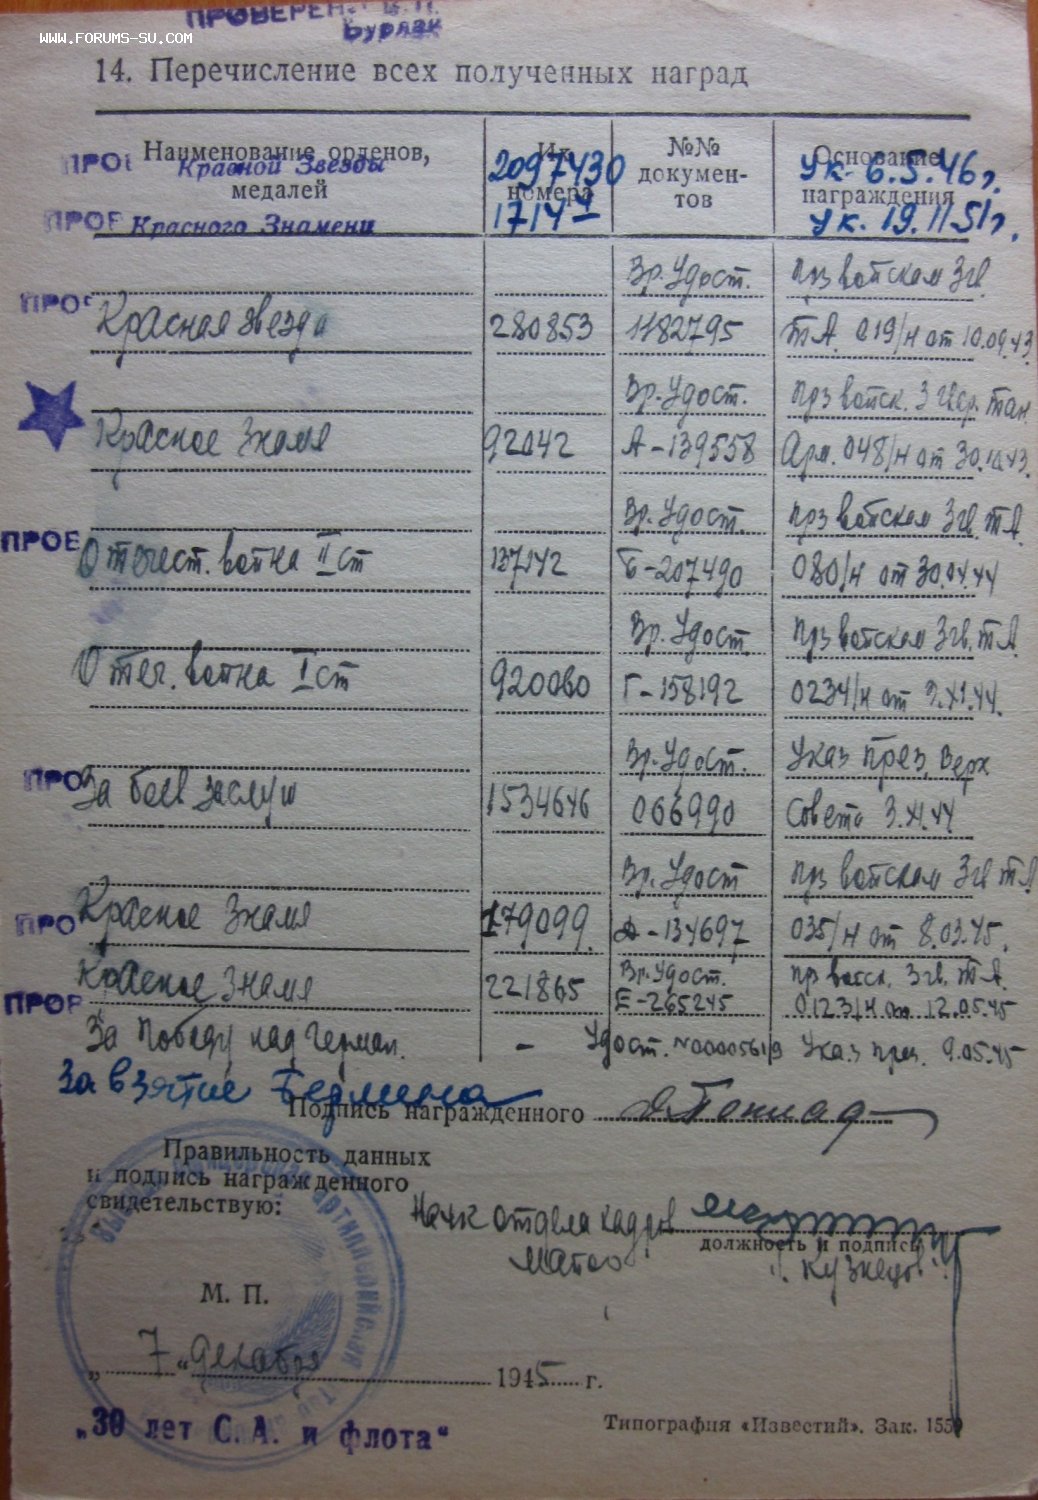 ПРОВЕРЕН
Бурлак
WWW.FORUMS-SU.COM
14. Перечисление всех полученных наград
Наименование орденов, медалей
Их номера
№№ докумен-тов
Основание награждения
ПРОВ Красной Звезды 2097430 Ук. 6.5.46г.
ПРОВ Красного Знамени Ук. 19.11.51г.
Вр. Удост. Прз войскам 3гв.
ПРОВ Красная звезда 280853 1182795 Т.А. 019/н от 10.09.43.
Вр. Удост. Прз войск. 3 Гвар. Тан.
Красное Знамя 92042 А-139558 Арм. 048/н от 30.10.43.
Вр. Удост. прз войскам 3гв. Т.А.
ПРОВ Отечест. война II ст 137142 Б-207490 080/н от 30.04.44
Вр. Удост. прз войскам 3гв. Т.А.
Отеч. война I ст Г-158192 0234/н от 3.XI.44.
Вр. Удост. Указ През. Верх
ПРО За боев заслуги 1534646 066990 Совета 3.XI.44
Вр. Удост прз войскам 3гв Т.А
ПРО Красное Знамя 179099. А-134697 035/н от 8.03.45.
Вр. Удост. пр войск. 3гв. Т.А.
ПРОВ Красное Знамя 221865 Е-265245 0123/н от 12.05.45
За победу над Герман. – Удост. Указ През. 9.05.45
За взятие Берлина
Подпись награжденного
Правильность данных
и подпись награжденного
свидетельствую:
Нач отдела кадров
должность и подпись
Кузнецов
М. П.
„ 7 “ декабря 1945 г.
„30 лет С. А. и флота“
Типография «Известий». Зак. 1559